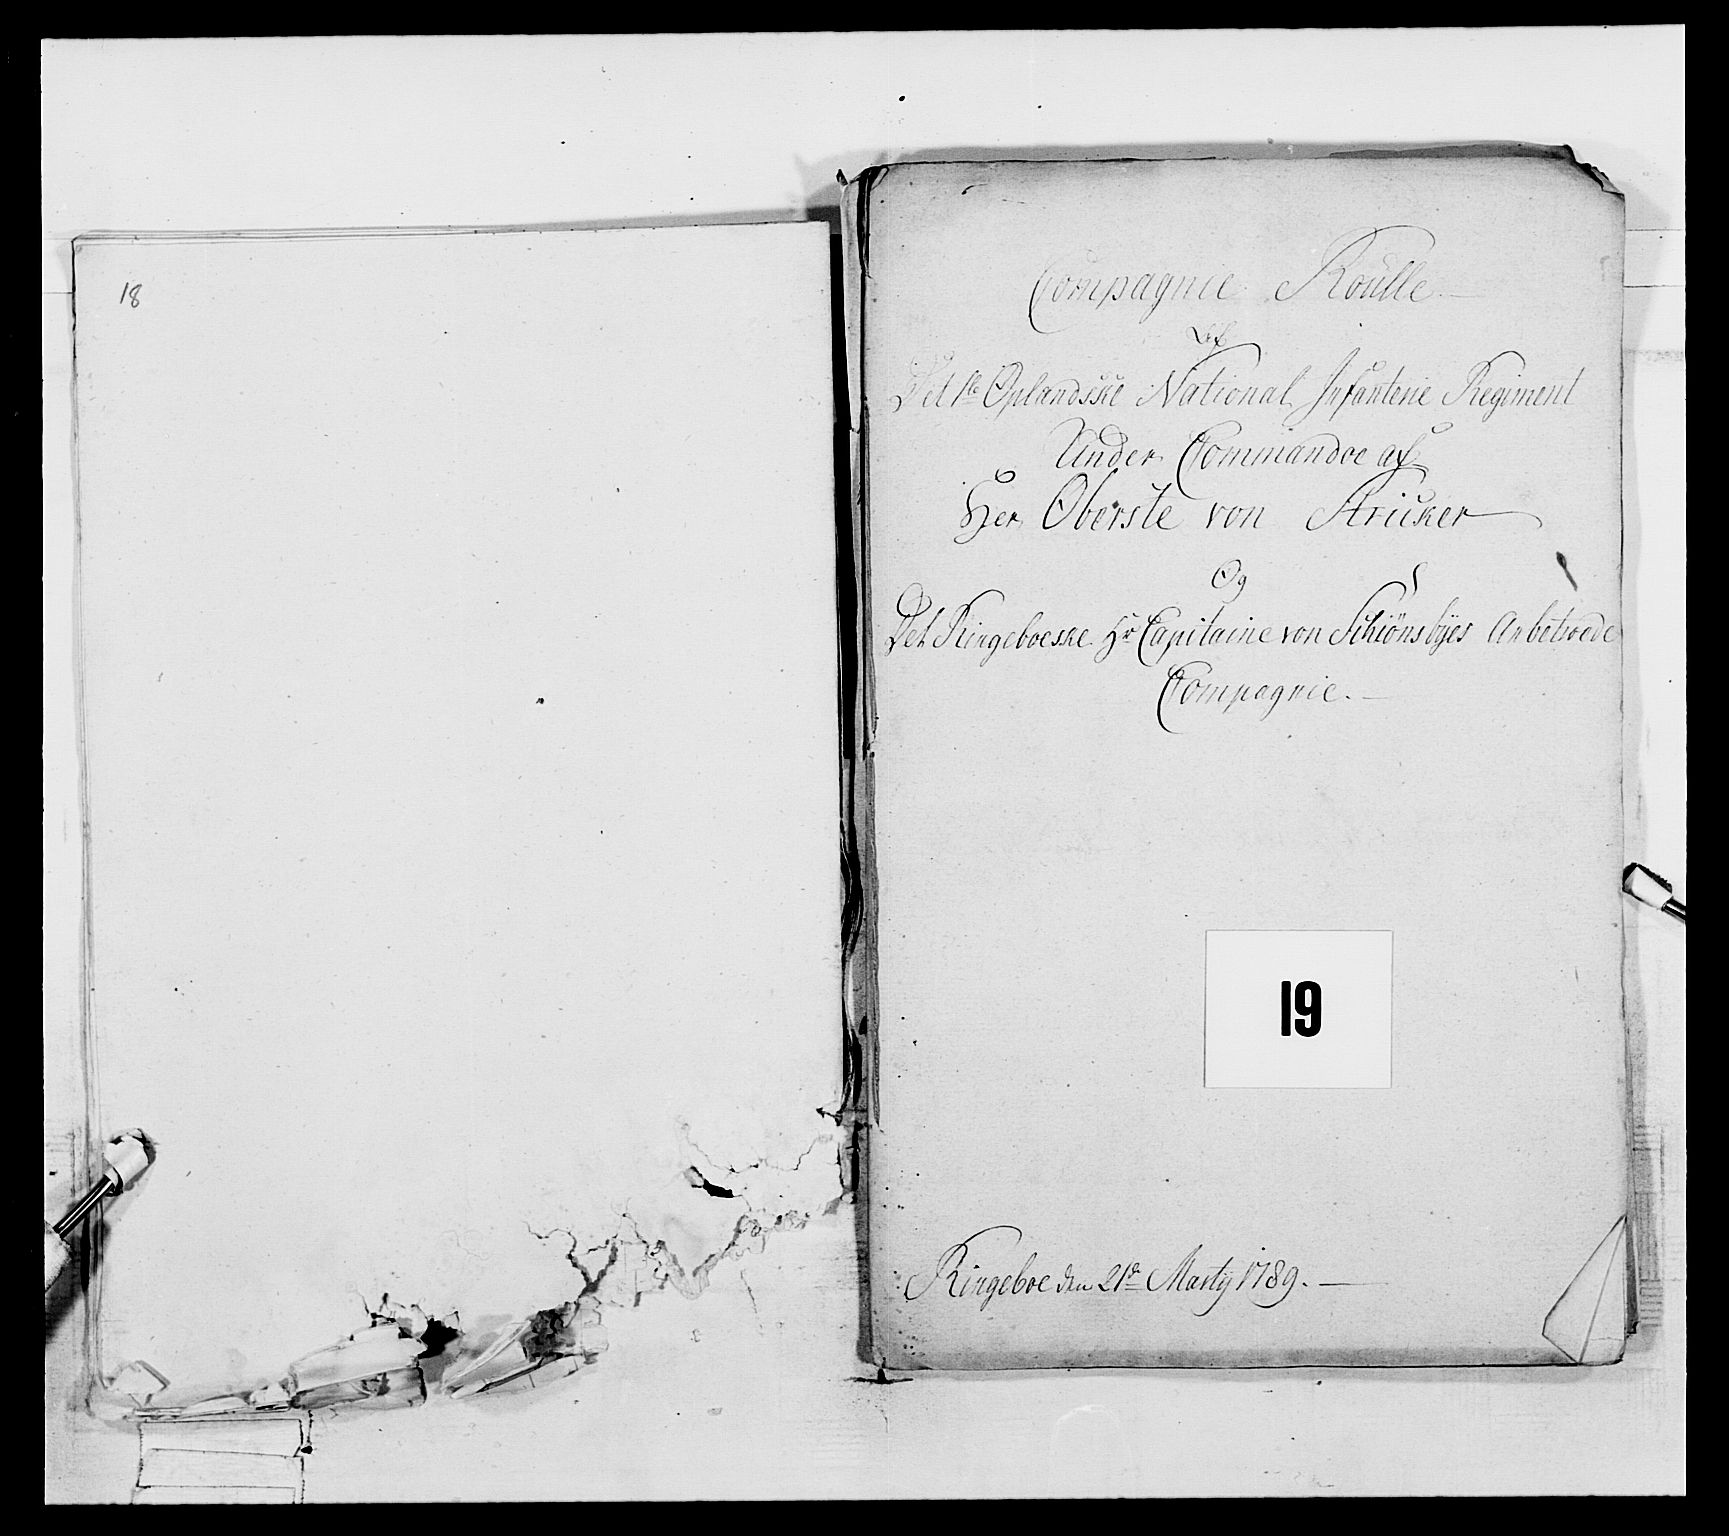 18
Compagnie Roulle
Af
Det 1te Oplandsske National Infanterie Regiment
Under Commandoe af
Her Oberste von Stricker
Og
Det Ringeboeske Hr Capitaine von Schiönsbÿes Anbetroede
Compagnie.
19
Ringeboe den 21de Martÿ 1789.